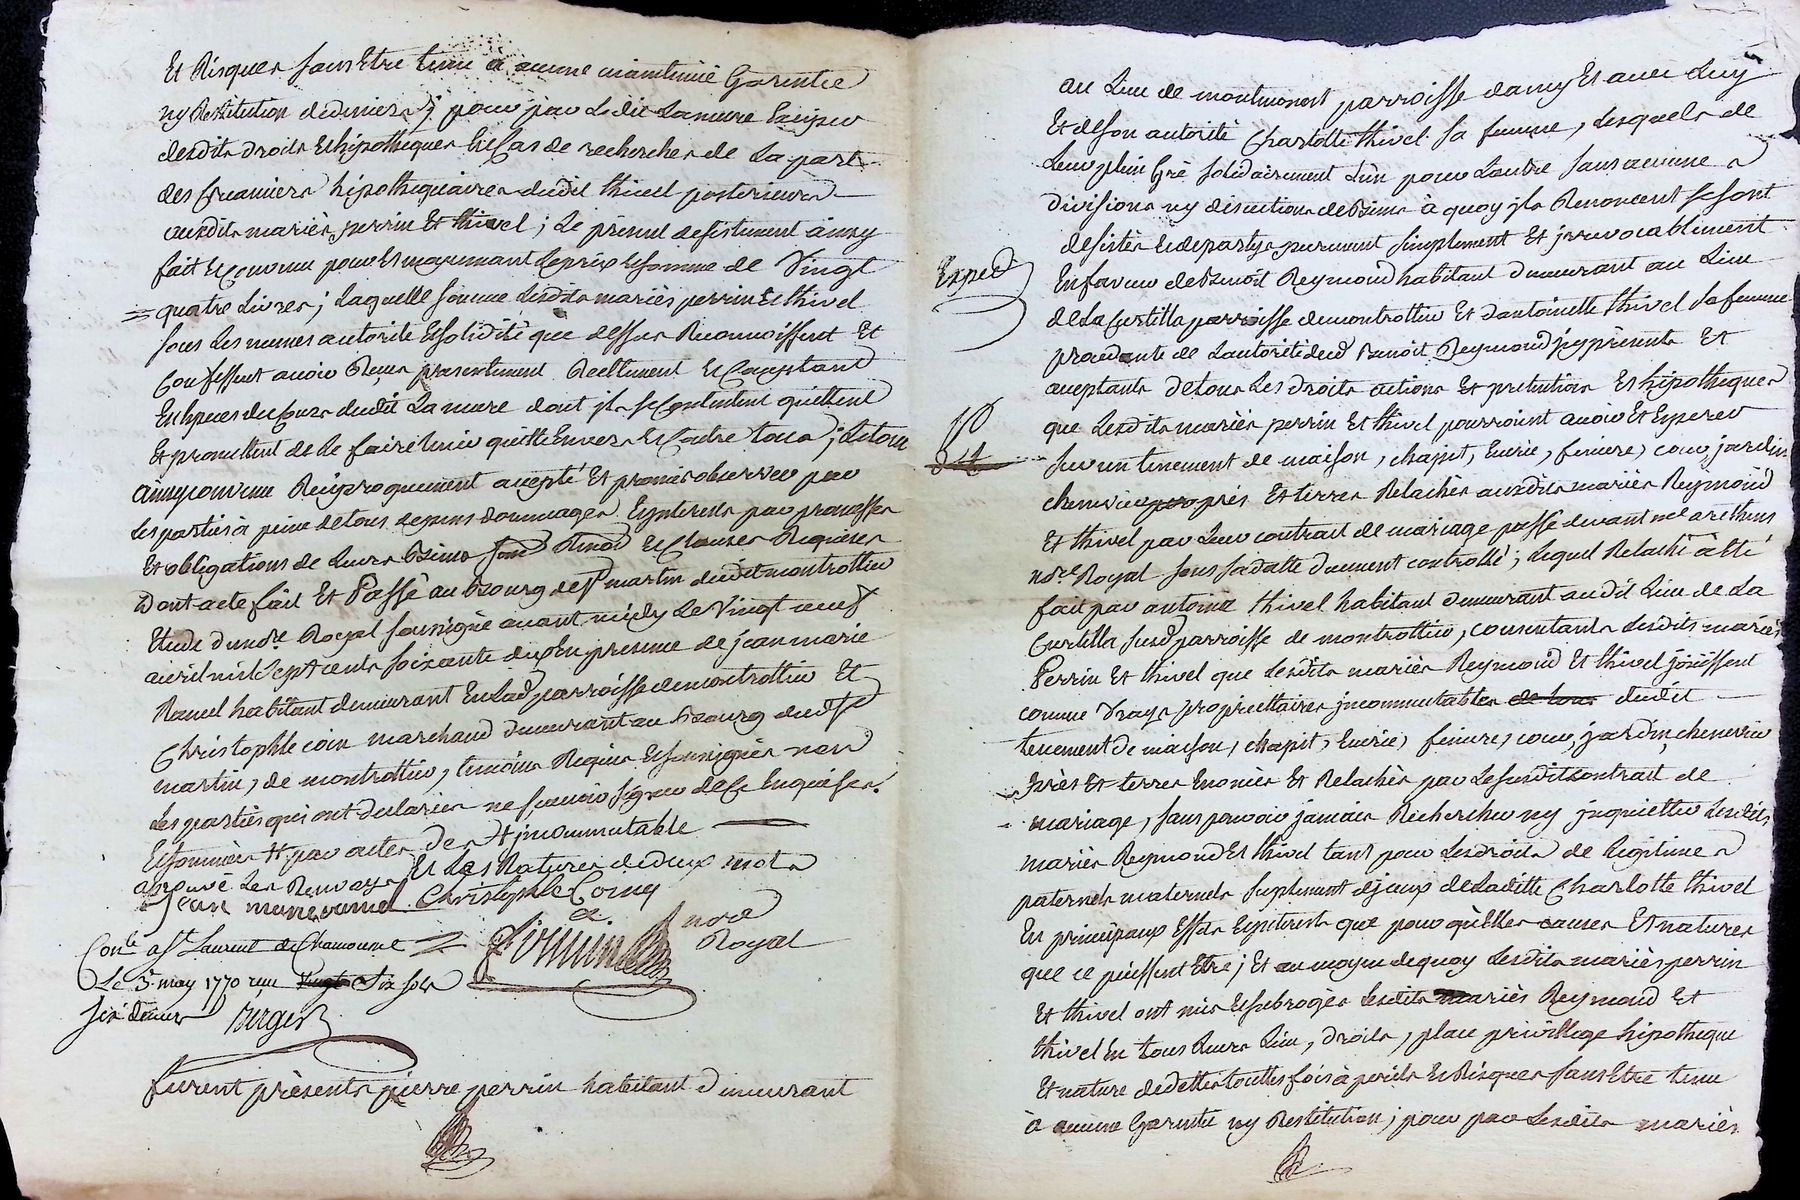 Et Risques sans Etre tenu a aucune maintenüe Garentie
ny Restitution de deniers; pour par Ledit Lamure Exiger
desdits droits Et hipotheques En Cas de recherches de La part
des Creanciers hipothequaires dudit thivel posterieurs
ausdits mariès perrin Et thivel; Le present desistement ainsy
fait Et Convenu pour Et moyennant Le prix Et somme de Vingt
quatre Livres; Laquelle somme Lesdits mariès perrin Et thivel
sous Les memes autorité Et solidité que dessus Reconnoissent Et
Confessent avoir Reçus presentement Reellement Et Comptant
En Especes du Cours dudit Lamure dont ils se Contentent quittent
Et promettent de Le faire tenir quitte Envers Et Contre tous; Le tout
ainsy convenu Reciproquement accepté Et promis observer par
Les parties à peine de tous depens dommages Et interests par promesses
Et obligations de Leurs Biens Soum Renon Et Clauses Requises
Dont acte fait Et Passé au Bourg de St martin dudit montrottier
Etude du nore Royal soussigné avant midy Le Vingt neuf
avril mil Sept cents soixante dix En presence de jean marie
Ramel habitant demeurant En Lad parroisse de montrottier Et
Christophle coin marchand demeurant au Bourg dudit St
martin, de montrottier, temoins Requis Et soussignès non
Les parties qui ont declarées ne sçavoir signer de Ce Enquises
Et sommées # par actes Der # incommutable
aprouvé Les Renvoys Et Les Ratures de deux mots
Jean marie ramel Christophle Coing
nore
Royal
Conle a St Laurent de Chamousset
Le 3 may 1770 reçu Vingt Six sols
six deniers Berger
furent présents pierre perrin habitant demeurant
au Lieu de montmenot parroisse dancy Et avec Luy
Et de son autorité Charlotte thivel sa femme, Lesquels de
Leur plein Gré solidairement L'un pour L'autre sans aucunes
divisions ny discutions de Biens à quoy ils Renoncent se sont
desistès Et departys purement simplement Et irrevocablement
En faveur de Benoit Reymond habitant demeurant au Lieu
Exped
de La Curtilla parroisse de montrottier Et d'antoinette thivel sa femme
procedante de L'autorité dud Benoit Reymond icy présents Et
aceptants de tous Les droits actions Et pretentions Et hipotheques
que Lesdits mariès perrin Et thivel pourroient avoir Et Esperer
sur un tenement de maison, chapit, Ecurie, feniere, cour jardin
chenevier prés Et terres Relachès ausdits mariès Reymond
Et thivel par Leur contrait de mariage passé devant me arethuns
nore Royal sous sa datte duement controllé; Lequel Relaché à été
fait par antoine thivel habitant demeurant audit Lieu de La
Curtilla susd parroisse de montrottier, consentants Lesdits mariès
Perrin Et thivel que Lesdits mariès Reymond Et thivel joüissent
comme Vrays proprietaires incommutables de tous dudit
tenement de maison, chapit, Ecurie, feniere, cour, jardin, chenevier
Près Et terres Enoncès Et Relachès par Le susdit Contrait de
mariage, sans pouvoir jamais Rechercher ny inquietter Lesdits
mariès Reymond Et thivel tant pour Lesdroits de Legitimes
paternels maternels suplement d'iceux de Laditte Charlotte thivel
En principaux Effets Et interests que pour qu'Elles causes Et natures
que ce puissent Etre; Et au moyen de quoy Lesdits mariès perrin
Et thivel ont mis Et subrogès Lesdits mariès Reymond Et
thivel En tous Leurs Lieu, droits, place privillege hipotheque
Et nature de dettes touttes fois à perils Et Risques sans Etre tenu
à aucune Garentie ny Restitution; pour par Lesdits mariès